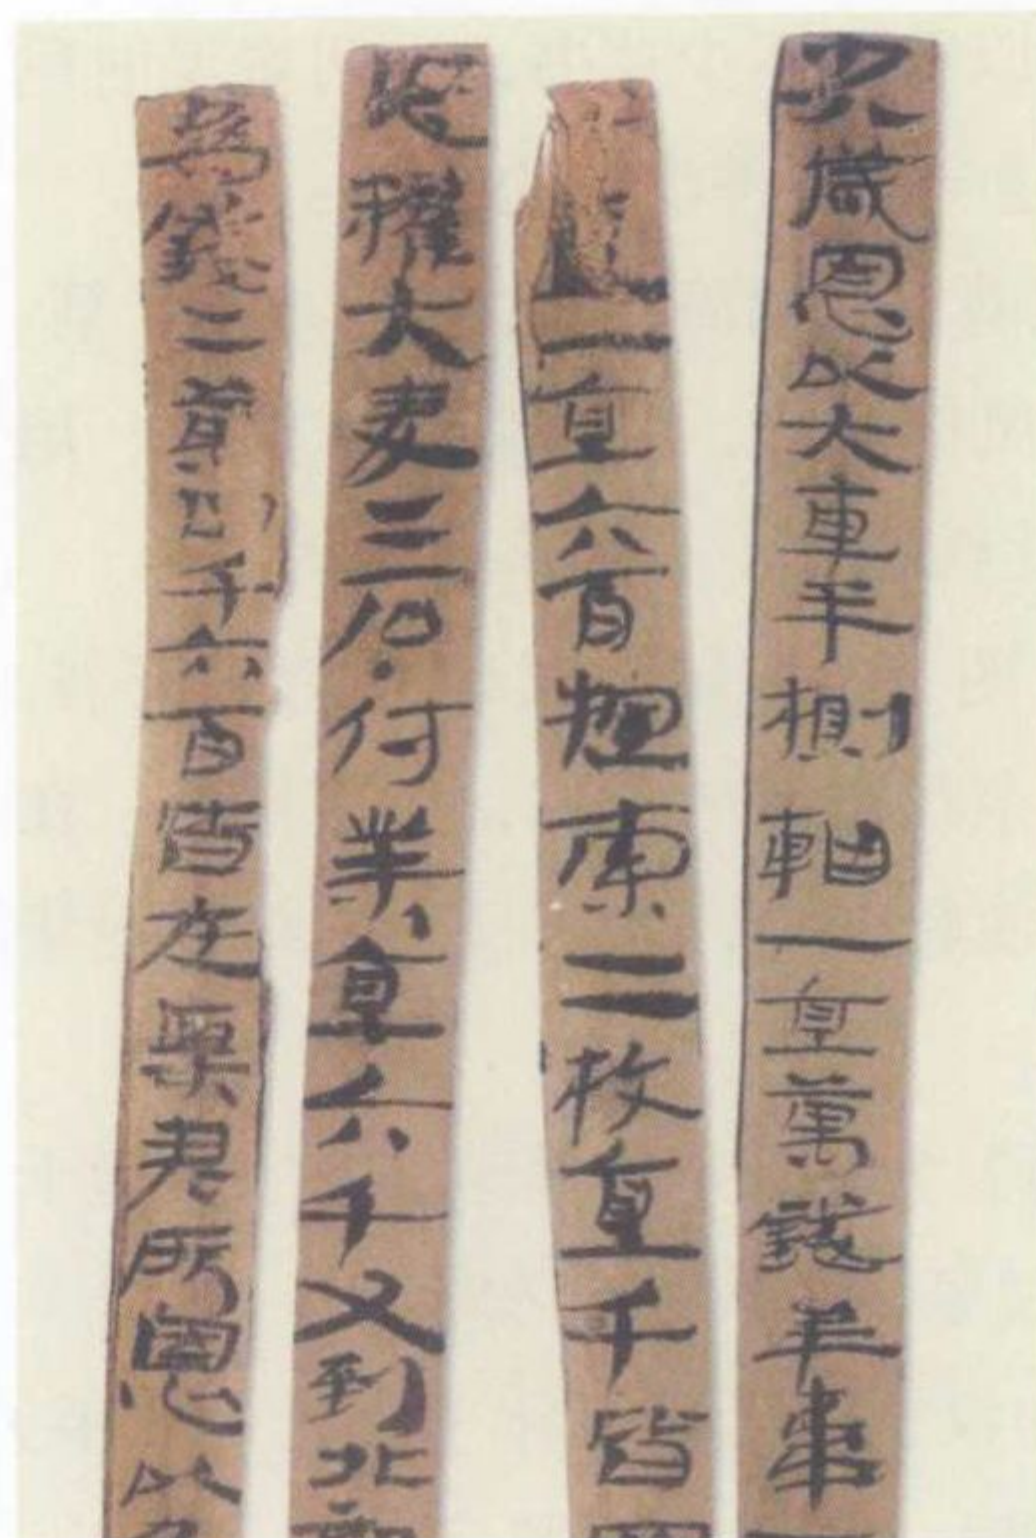 少八歲恩以大車半𣝔軸一直萬錢羊韋
一直六百索二枚直千皆
恩糴大麥二石付業直六千又到北部
為錢二萬四千六百皆在粟君所恩以